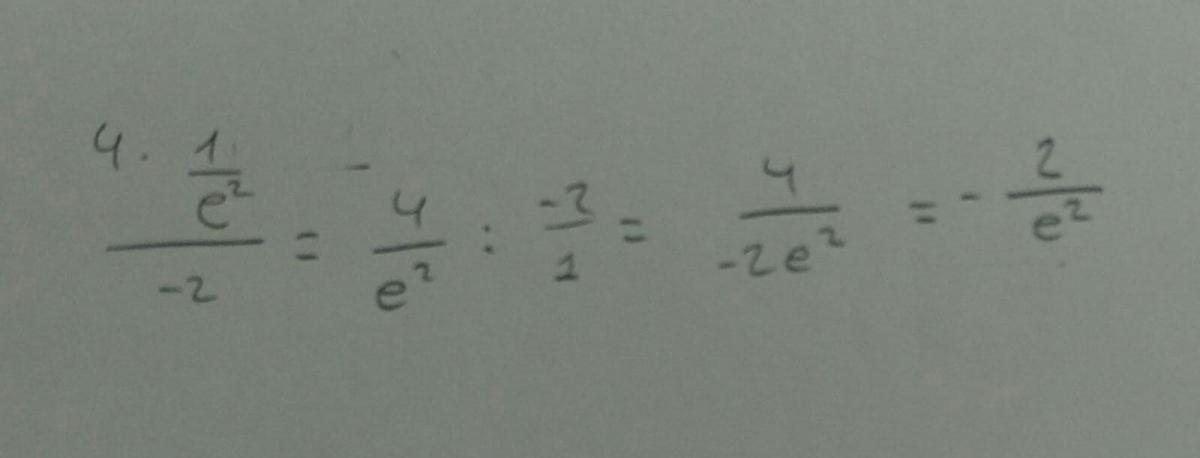 4 · 1/e² / -2 = 4/e² : -2/1 = 4/-2e² = - 2/e²